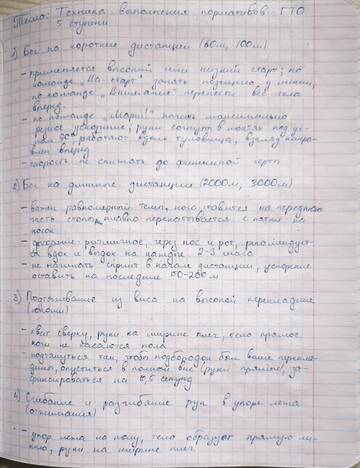 Тема: Техника выполнения нормативов ГТО
5 ступени
1) Бег на короткие дистанции (60м, 100м)
- применяется высокий или низкий старт; по
команде "На старт" занять позицию у линии,
по команде "Внимание" перенести вес тела
вперед.
- по команде "Марш!" начать максимально
резкое ускорение; руки согнуты в локтях под уг-
лом 90° работают вдоль туловища, взгляд направ-
лен вперед
- скорость не снижать до финишной черты
2) Бег на длинные дистанции (2000м, 3000м)
- важен равномерный темп, нога ставится на переднюю
часть стопы, плавно перекатывается с пятки на
носок
- дыхание: ритмичное, через нос и рот, рекомендует-
ся вдох и выдох на каждые 2-3 шага
- не начинать спринт в начале дистанции, ускорение
оставить на последние 150-200 м
3) Подтягивание из виса на высокой перекладине
(юноши)
- хват сверху, руки на ширине плеч, тело прямое,
ноги не касаются пола
- подтянуться так, чтоб подбородок был выше перекла-
дины, опуститься в полный вис (руки прямые), за-
фиксироваться на 0,5 секунд
4) Сгибание и разгибание рук в упоре лежа
(отжимания)
- упор лежа на полу, тело образует прямую ли-
нию, руки на ширине плеч